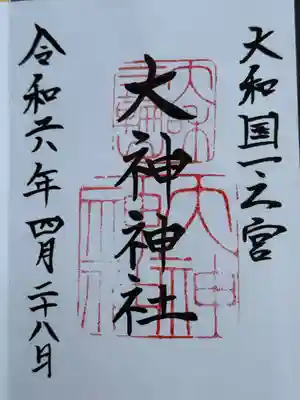 大和国一之宮
大神神社
令和六年四月二十八日